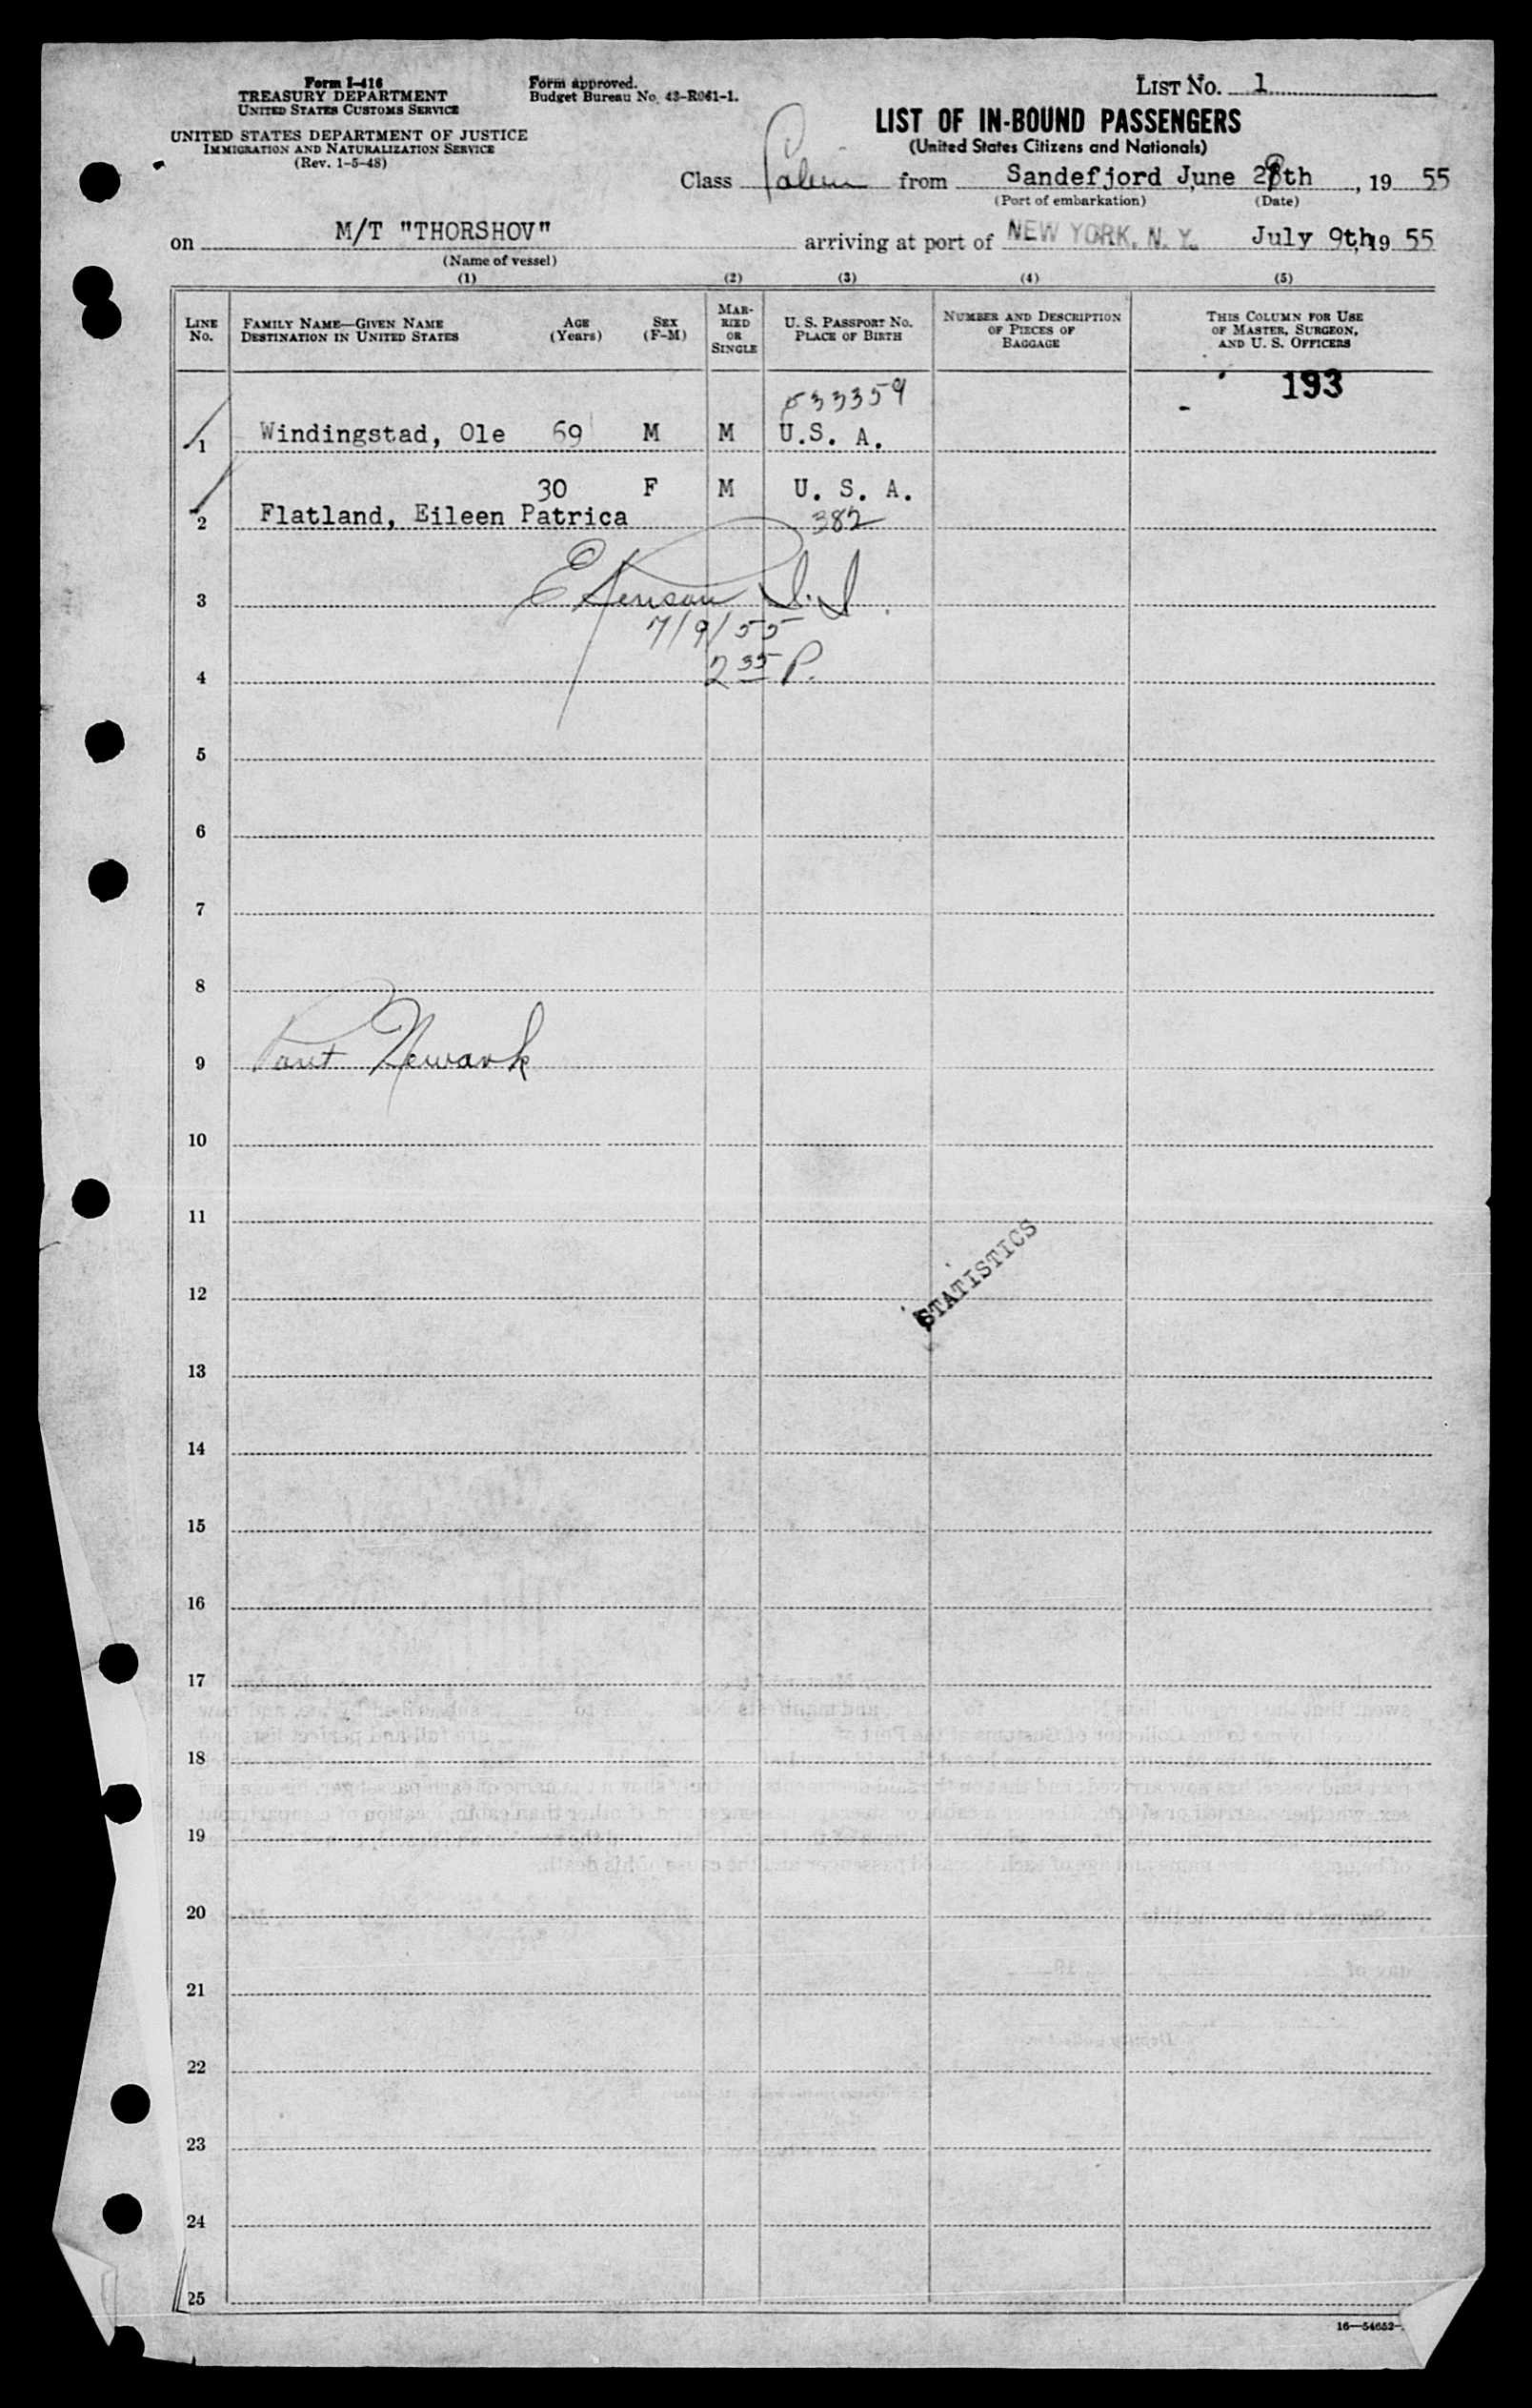 Form I-416
TREASURY DEPARTMENT
UNITED STATES CUSTOMS SERVICE
UNITED STATES DEPARTMENT OF JUSTICE
IMMIGRATION AND NATURALIZATION SERVICE
(Rev. 1-5-48)
Form approved.
Budget Bureau No. 43-R061-1.
LIST No. 1
LIST OF IN-BOUND PASSENGERS
(United States Citizens and Nationals)
Class Cabin from Sandefjord June 29th, 19 55
(Port of embarkation) (Date)
on M/T "THORSHOV" arriving at port of NEW YORK, N. Y. July 9th, 19 55
(Name of vessel)
(1) (2) (3) (4) (5)
LINE No. FAMILY NAME—GIVEN NAME DESTINATION IN UNITED STATES AGE (Years) SEX (F-M) MARRIED OR SINGLE U. S. PASSPORT No. PLACE OF BIRTH NUMBER AND DESCRIPTION OF PIECES OF BAGGAGE THIS COLUMN FOR USE OF MASTER, SURGEON, AND U. S. OFFICERS
193
533359
1 Windingstad, Ole 69 M M U.S. A.
30 F M U. S. A.
2 Flatland, Eileen Patrica 382
3
7/9/55
4 2 35 P.
5
6
7
8
9 Port Newark
10
11
STATISTICS
12
13
14
15
16
17
18
19
20
21
22
23
24
25